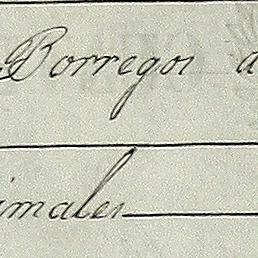 Borregos a
imales